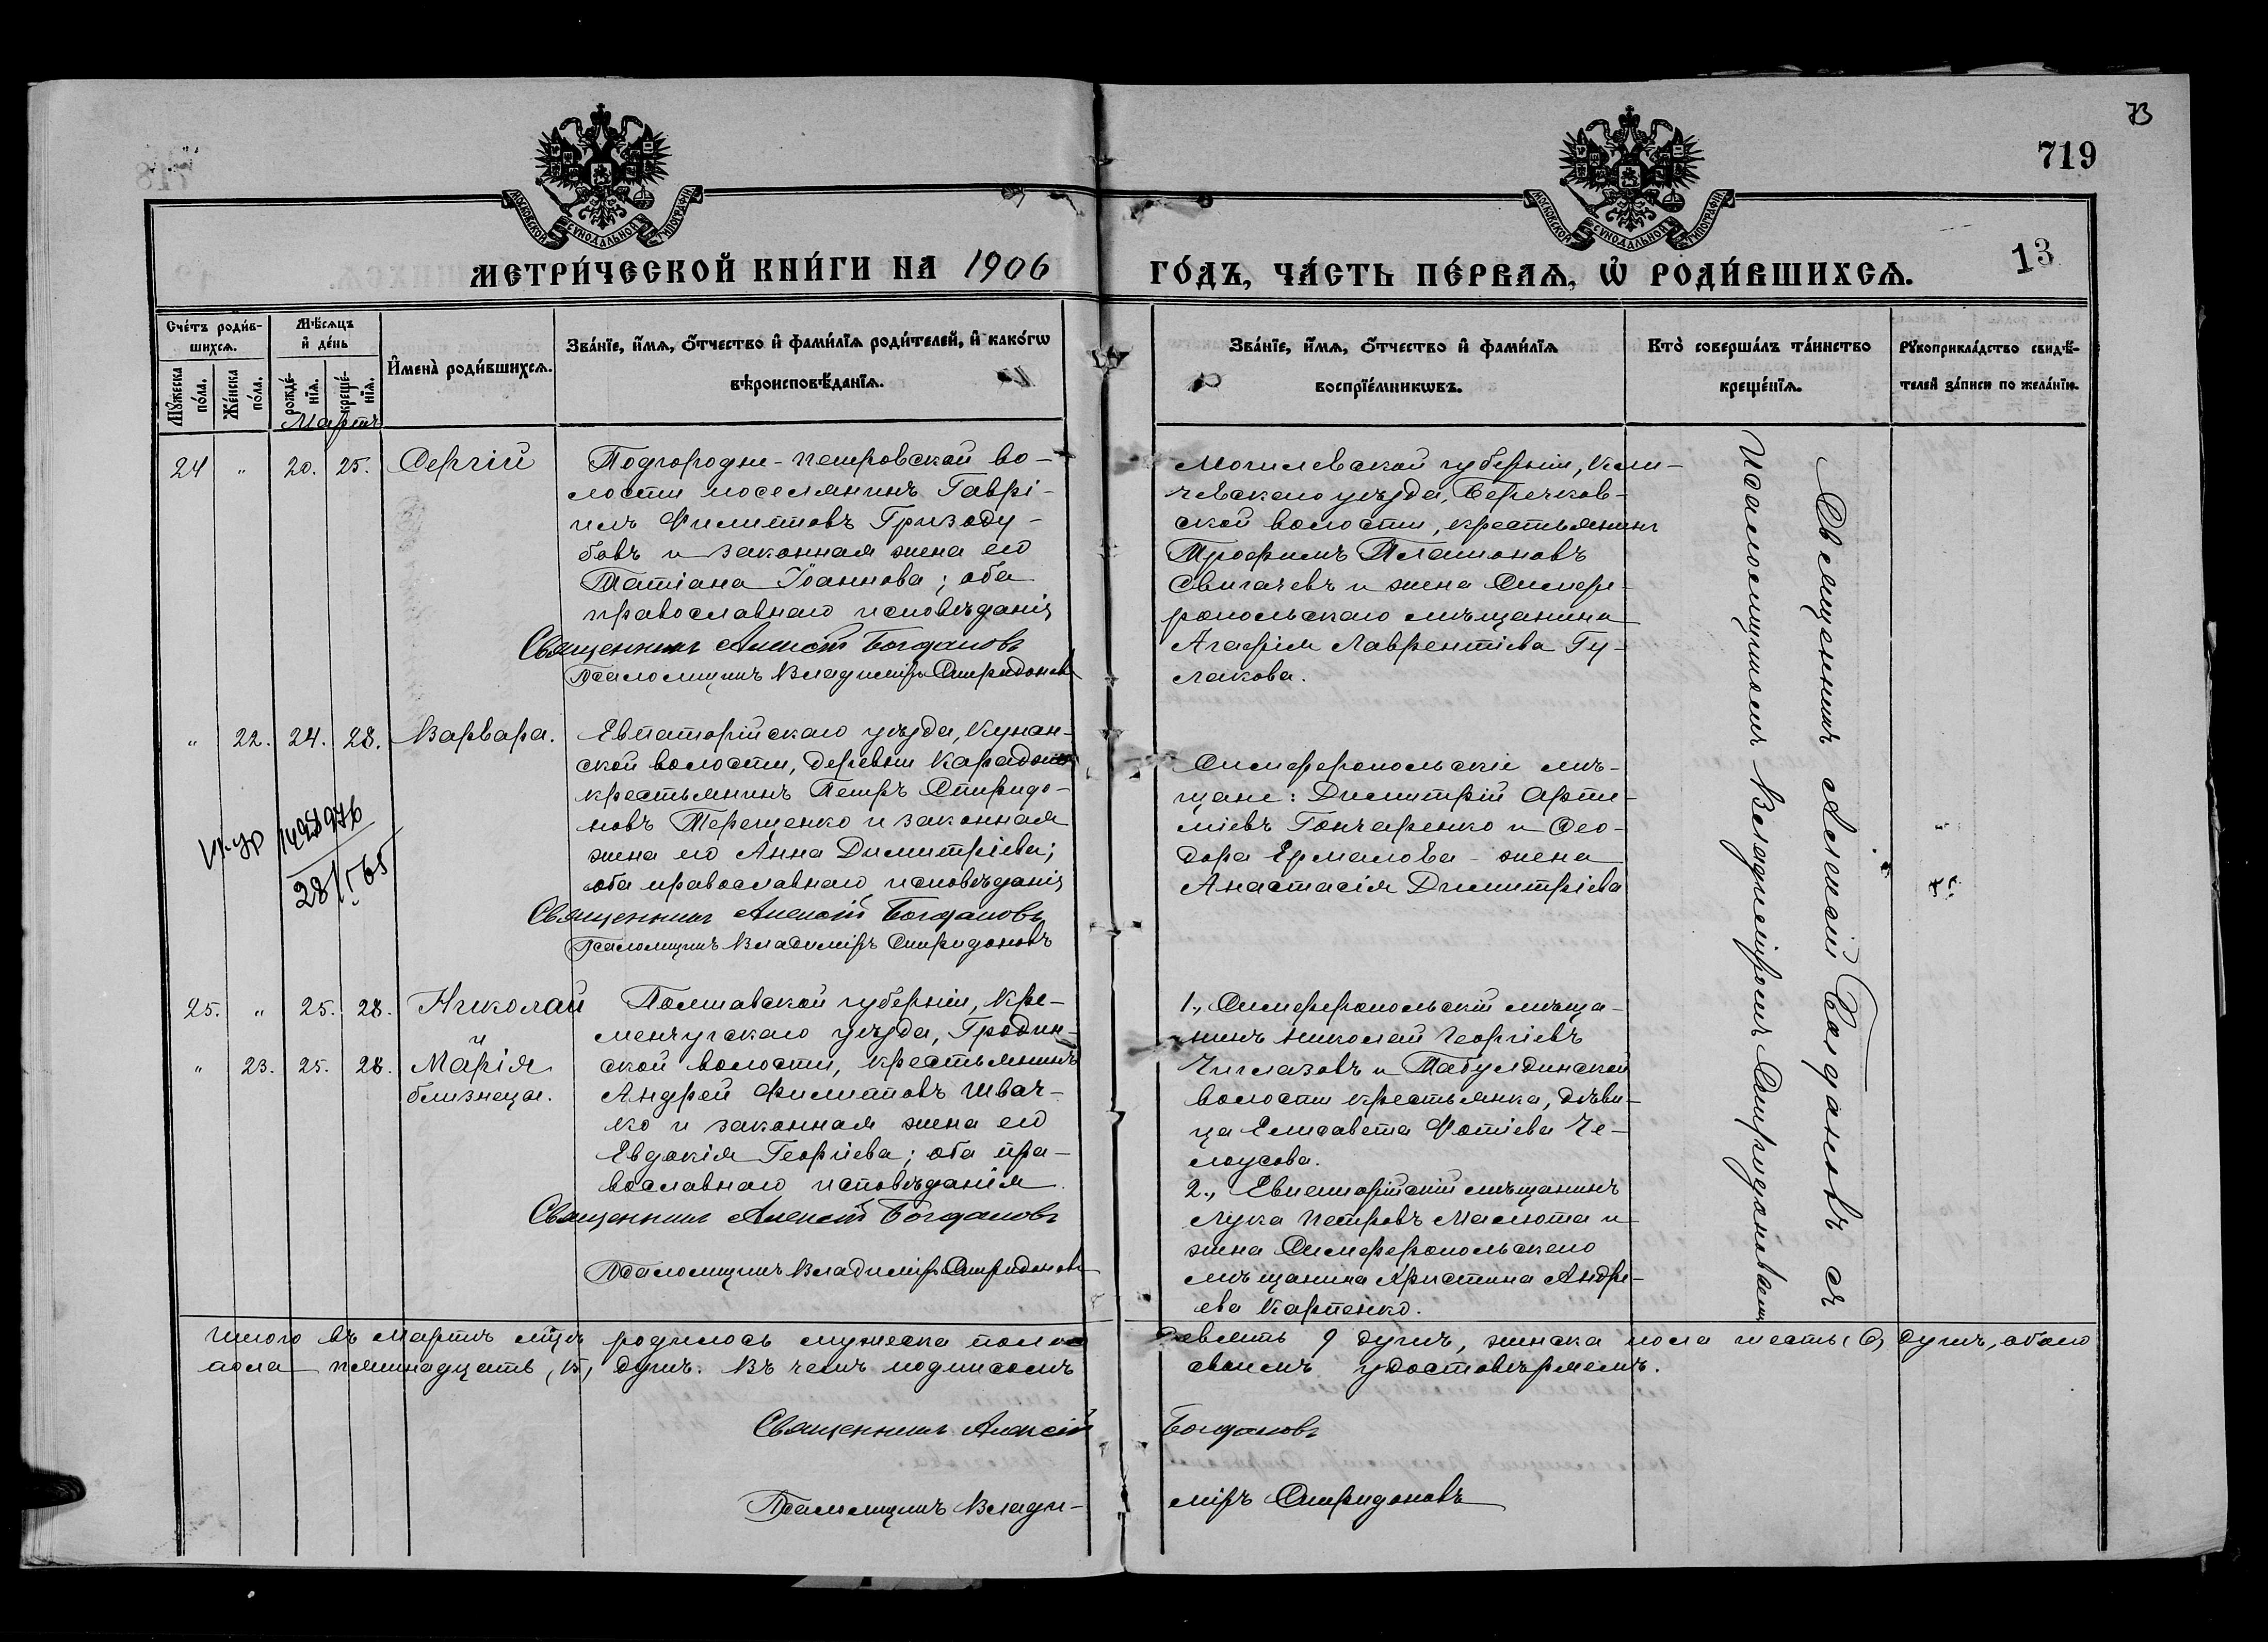 73
719
13
МОСКОВСКОЙ СУНОДАЛЬНОЙ ТИПОГРАФІИ
МОСКОВСКОЙ СУНОДАЛЬНОЙ ТИПОГРАФІИ
МЕТРИ́ЧЕСКОЙ КНИ́ГИ НА 1906 ГО́ДЪ, ЧА́СТЬ ПЕ́РВАѦ, Ѡ҆ РОДИ́ВШИХСѦ.
Сче́тъ роди́в-
шихсѧ.
Мꙋ́жеска по́ла.
Же́нска по́ла.
Мѣ́сѧцъ и҆ де́нь
рожде́-нїѧ.
креще́-нїѧ.
Мартъ
И҆мена̀ роди́вшихсѧ.
Зва́нїе, и҆́мѧ, ѻ҆́тчество и҆ фами́лїѧ роди́телей, и҆ како́гѡ
вѣроисповѣ́данїѧ.
Зва́нїе, и҆́мѧ, ѻ҆́тчество и҆ фами́лїѧ
воспрїе́мникѡвъ.
Кто̀ соверша́лъ та́инство
креще́нїѧ.
Рꙋкоприкла́дство свидѣ́-
телей за́писи по жела́нїю.
24 " 20. 25. Сергій
Подгородне-Петровской во-
лости поселянинъ Гаврі-
илъ Филиповъ Гризоду-
бовъ и законная жена его
Татіана Іоаннова; оба
православнаго исповѣданія
Священникъ Алексій Богдановъ
Псаломщикъ Владиміръ Спиридоновъ
Могилевской губерніи, Кли-
чевскаго уѣзда,
ской волости, крестьянинъ
Трофимъ Платоновъ
и жена Симфе-
ропольскаго мѣщанина
Агафія Лаврентіева Гу-
лакова.
" 22. 24. 28. Варвара.
Евпаторійскаго уѣзда, Кунан-
ской волости, деревни
крестьянинъ Петръ Спиридо-
новъ Терещенко и законная
жена его Анна Димитріева;
оба православнаго исповѣданія
Священникъ Алексій Богдановъ
Псаломщикъ Владиміръ Спиридоновъ
Симферопольскіе мѣ-
щане: Димитрій Арте-
міевъ Гончаренко и Ѳео-
дора Ермалова - жена
Анастасія Димитріева
28/I 65
25. " 25. 28. Николай
и
" 23. 25. 28. Марія
близнецы.
Полтавской губерніи, Кре-
менчугскаго уѣзда, Градиж-
ской волости, крестьянинъ
Андрей Филиповъ Швач-
ко и законная жена его
Евдокія Георгіева; оба пра-
вославнаго исповѣданія
Священникъ Алексій Богдановъ
Псаломщикъ Владиміръ Спиридоновъ
1., Симферопольскій мѣща-
нинъ Николай Георгіевъ
Чиглазовъ и Табулдинской
волости крестьянка, дѣви-
ца Елисавета Фотіева Че-
лоусова.
2., Евпаторійскій мѣщанинъ
Лука Петровъ Маслюта и
жена Симферопольскаго
мѣщанина Христина Андре-
ева Карпенко.
Священникъ Алексій Богдановъ съ
Псаломщикомъ Владиміромъ Спиридоновымъ
Итого въ мартѣ мѣсяцѣ родилось мужеска пола девять 9 душъ, женска пола шесть (6) душъ, обоего
пола пятнадцать (15) душъ. Въ чемъ подписомъ своимъ удостовѣряемъ.
Священникъ Алексій Богдановъ
Псаломщикъ Владиміръ Спиридоновъ